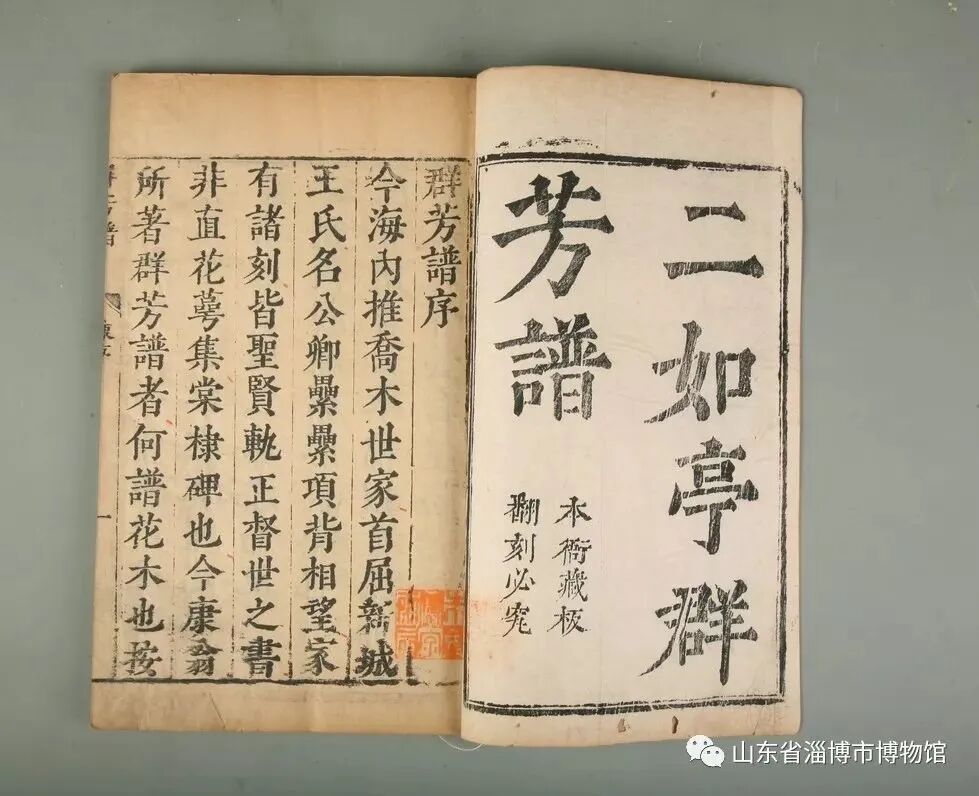 二如亭群
芳譜
本衙藏板
翻刻必究
群芳譜序
今海內推喬木世家首屈新城
王氏名公卿纍纍項背相望家
有諸刻皆聖賢軌正督世之書
非直花萼集棠棣碑也今康翁
所著群芳譜者何譜花木也按
山东省淄博市博物馆